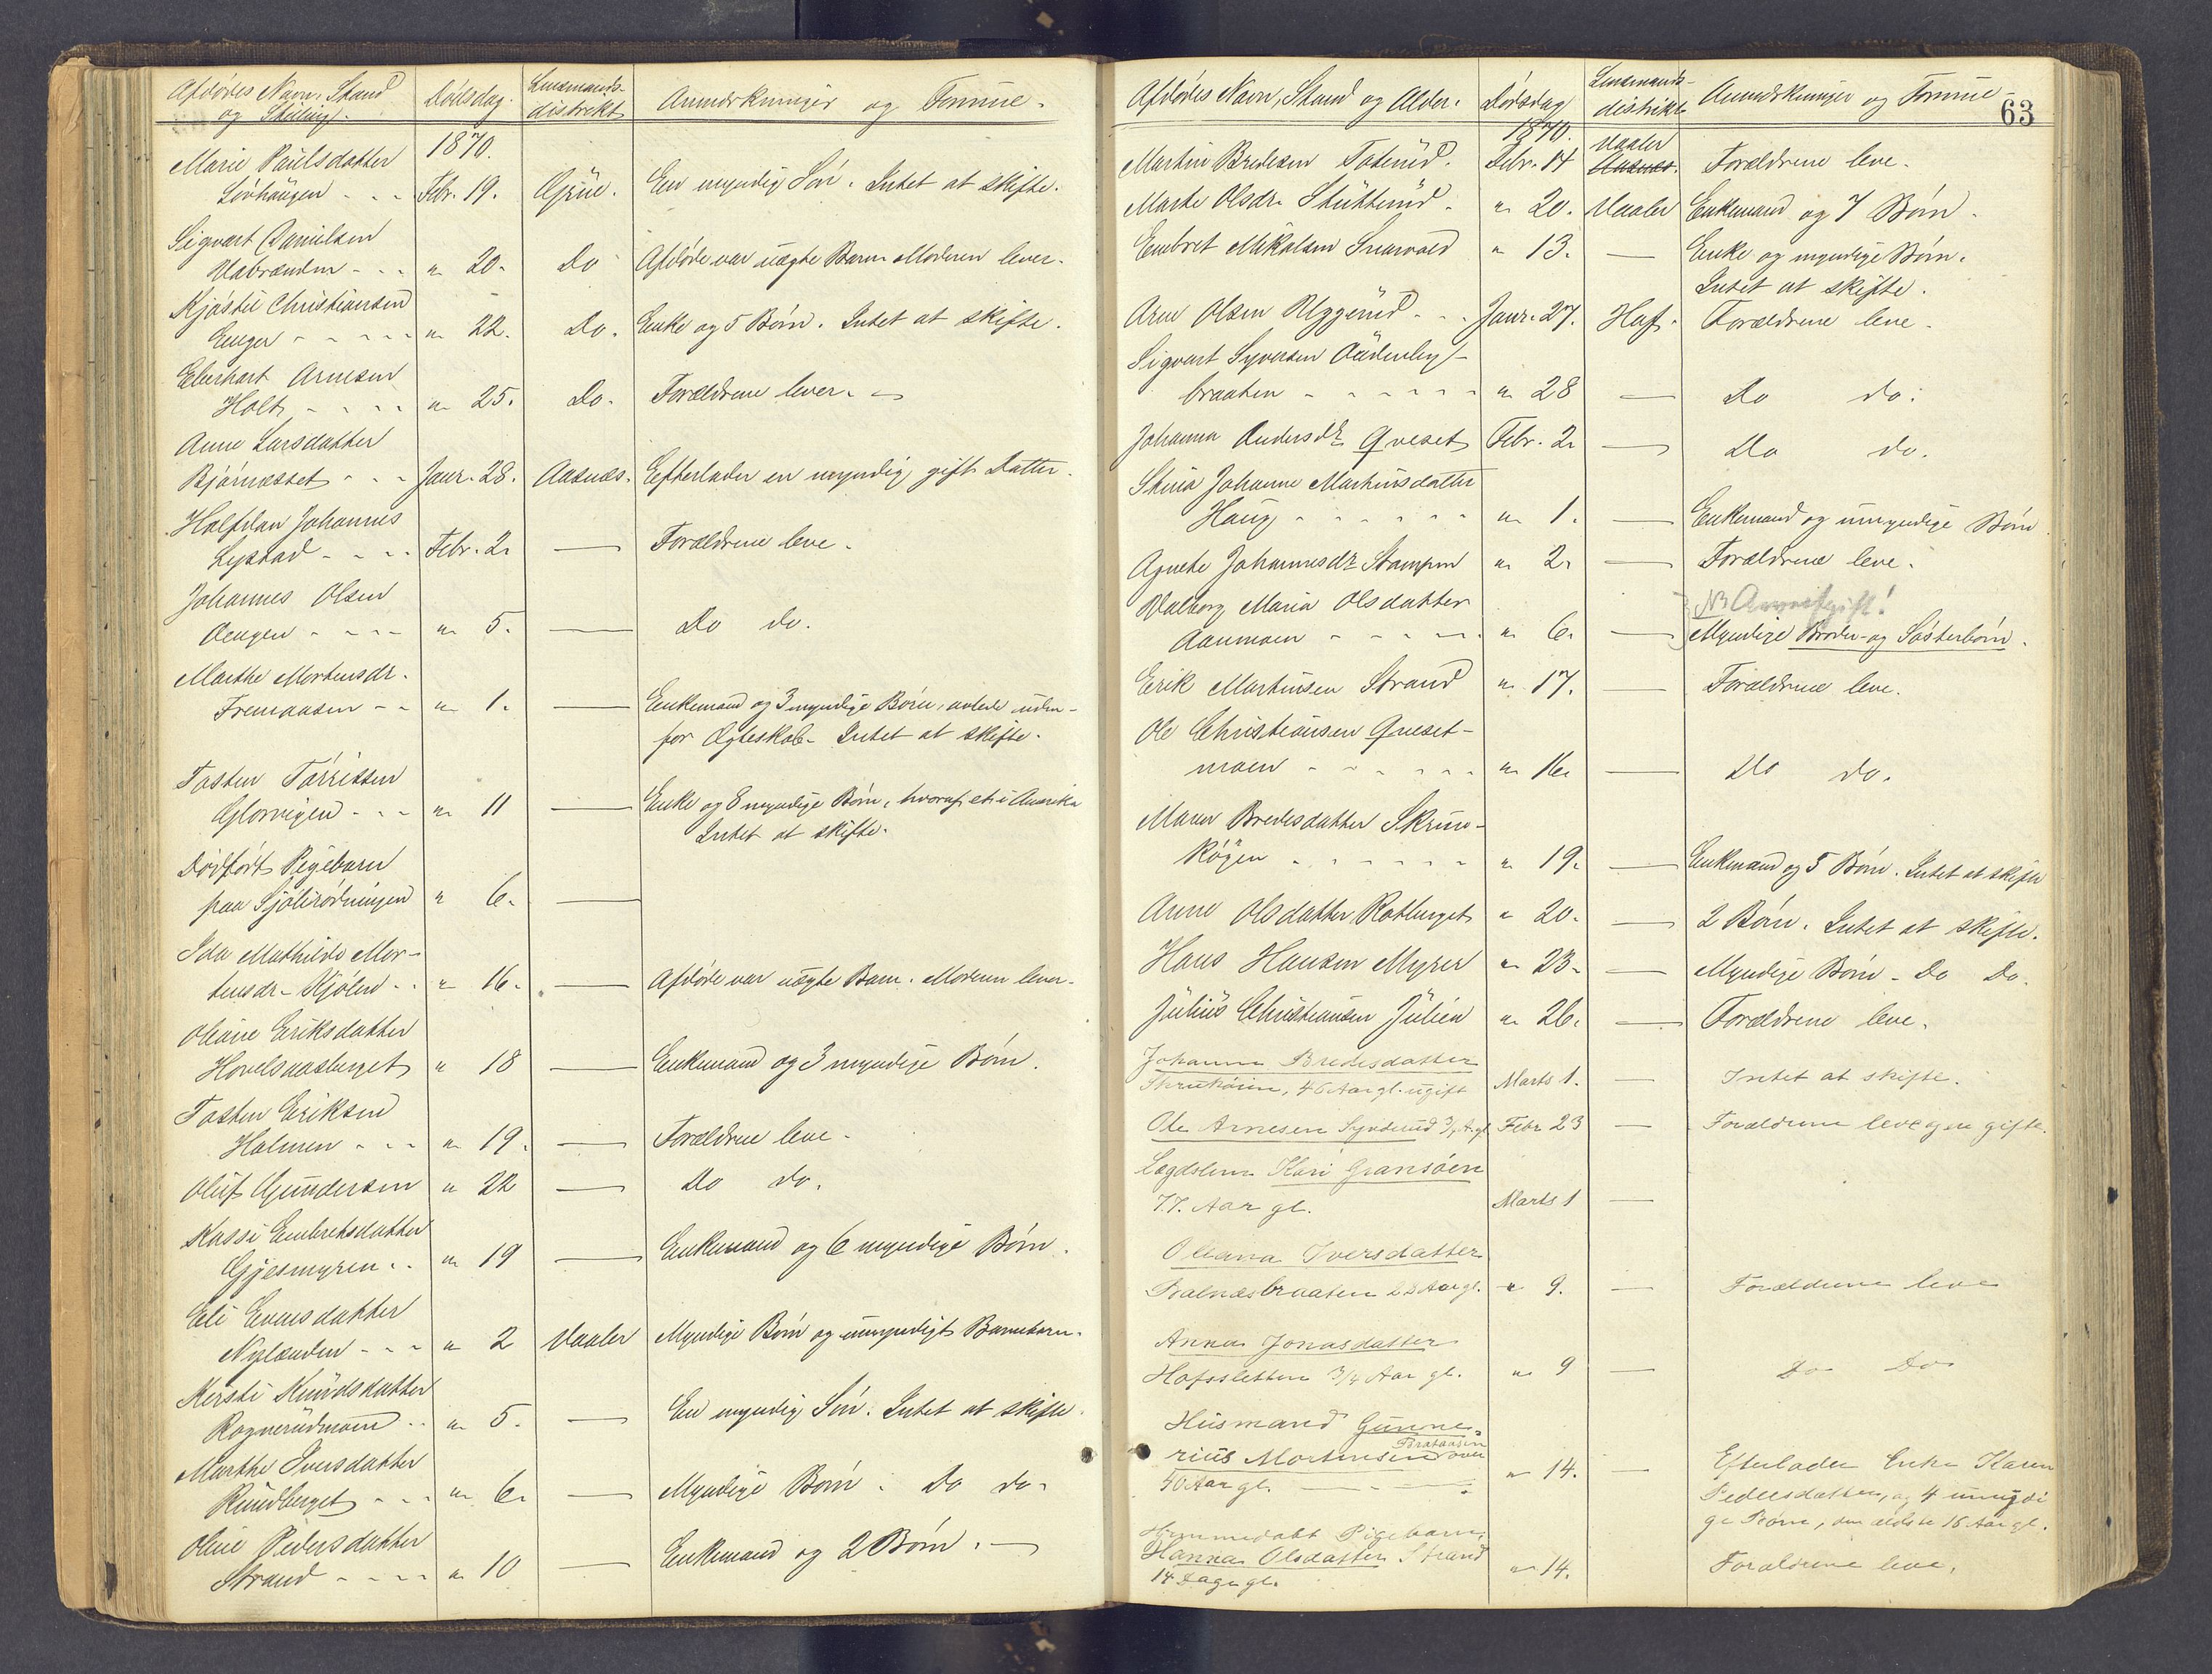 Afdødes Navn, Stand
og Stilling.
Dødsdag.
Lensmands-
distrikt
Anmærkninger og Formue.
1870.
Marie Paulsdatter
Løvhaugen - - - Febr. 19. Grue. En myndig Søn. Intet at skifte.
Sigvart Danielsen
- - - " 20. Do Afdøde var uægte Barn. Moderen lever.
Kjøstil Christiansen
Enger - - - - - " 22. Do. Enke og 5 Børn. Intet at skifte.
Eberhart Arnesen
Holt - - - - " 25. Do. Forældrene lever.
Anne Larsdatter
Bjørnæsset - - - Janr. 28. Aasnæs. Efterlader en myndig gift Datter.
Halfdan Johannes
Lystad - - - - Febr. 2. — Forældrene leve.
Johannes Olsen
Aengen - - - - " 5. — Do do.
Marthe Mortensdr.
- - " 1. — Enkemand og 3 myndige Børn, avlede uden-
for Ægteskab. Intet at skifte.
Tosten Tørrissen
Glorvigen - - - " 11 — Enke og 8 myndige Børn, hvoraf et i Amerika
Intet at skifte.
Dødfødt Pigebarn
paa Sjølirødningen " 6. —
Ida Mathilde Mor-
tensdr. Kjølen - - " 16. — Afdøde var uægte Barn. Moderen lever.
Oliane Eriksdatter
Hovelsaasberget " 18 — Enkemand og 3 myndige Børn.
Tosten Eriksen
Holmen - - - " 19. — Forældrene leve.
Oluf Gundersen " 22 — Do do.
Kassi Embretsdatter
Gjesmyren . . " 19 — Enkemand og 6 myndige Børn.
Eli Evensdatter
Nylænden - - - " 2 Vaaler Myndige Børn og umyndigt Barnebarn.
Kersti Knudsdatter
Rognerudmoen - - " 5. — En myndig Søn. Intet at skifte.
Marthe Iversdatter
Rundberget - - - " 6. — Myndige Børn. Do do.
Oline Pedersdatter
Strand - - - - " 10 — Enkemand og 2 Børn. —
63
Afdødes Navn, Stand og Alder.
Dødsdag
Lensmands-
distrikt
Anmærkninger og Formue
1870. Vaaler
Martin Bredesen Toterud. Febr. 14 Aasnæs. Forældrene leve.
Marte Olsdr. Stutterud. " 20. Vaaler Enkemand og 7 Børn.
Embret Mikalsen Snarvold " 13. — Enke og myndige Børn.
Intet at skifte.
Arne Olsen Uggerud - - - Janr. 27. Hof. Forældrene leve.
Sigvart Syversen
braaten - - - - - - " 28 — Do do.
Johanna Andersdr. Qveset Febr. 2 — Do do.
Stina Johanne Martinsdatter
Haug - - - - - - " 1. — Enkemand og umyndige Børn
Agnethe Johannesdr. Stampen " 2. — Forældrene leve.
Valborg Maria Olsdatter NB Arveafgift!
Aanmoen - - - - - " 6. — Myndige Broder- og Søsterbørn.
Erik Martinsen Strand " 17. — Forældrene leve.
Ole Christiansen Qveset-
moen - - - - - - " 16. — Do do.
Maren Bredesdatter Skrus-
køgen - - - - - - " 19. — Enkemand og 5 Børn. Intet at skifte
Anne Olsdatter Rotberget " 20. — 2 Børn. Intet at skifte.
Hans Hansen Myrer " 23. — Myndige Børn. Do Do.
Julius Christiansen Julien " 26. — Forældrene leve.
Johanna Bredesdatter
46 Aar gl. ugift Marts 1. — Intet at skifte.
Ole Arnesen A. gl. Febr 23 — Forældrene leve og ere gifte.
Lægdslem Kari Gransøen
77. Aar gl. Marts 1 —
Oliana Iversdatter
Balnæsbraaten 28 Aar gl. " 9. — Forældrene leve
Anna Jonasdatter
Hofssletten 3/4 Aar gl. " 9 — Do Do
Husmand Gunne-
rius Mortensen Brataasen over
40 Aar gl. - - - - " 14. — Efterlader Enke Karen
Pedersdatter, og 4 umyndi
ge Børn, den ældste 16 Aar gl.
Hjemmedøbt Pigebarn,
Hanna Olsdatter Strand
14 Dage gl. " 14. Forældrene leve.